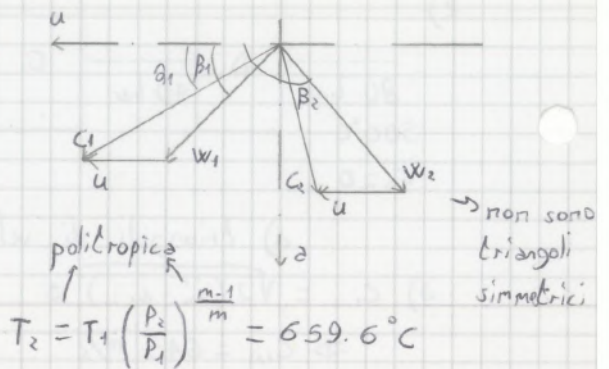 u
α1 β1
β2
C1
W1
u
C2
W2
u
→ non sono
triangoli
simmetrici
a
politropica
T2 = T1 (P2/P1)^((m-1)/m) = 659.6°C